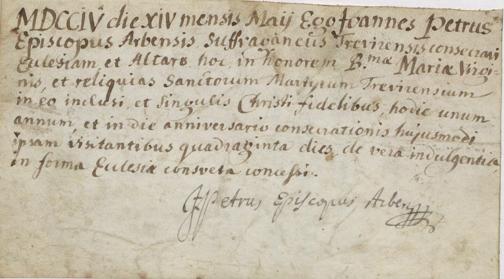 MDCCIV die XIV mensis Maij Ego Joannes Petrus
Episcopus Arbensis Suffraganeus Trevirensis consecravi
Ecclesiam et Altare hoc in honorem B.mæ Mariæ Virgi
nis, et reliquias Sanctorum Martyrum Trevirensium
in eo inclusi, et singulis Christi fidelibus, hodie unum
annum, et in die anniversario consecrationis hujusmodi
ipsam visitantibus quadraginta dies de vera indulgentia
in forma Ecclesiæ consueta concessi.
Petrus Episcopus Arben